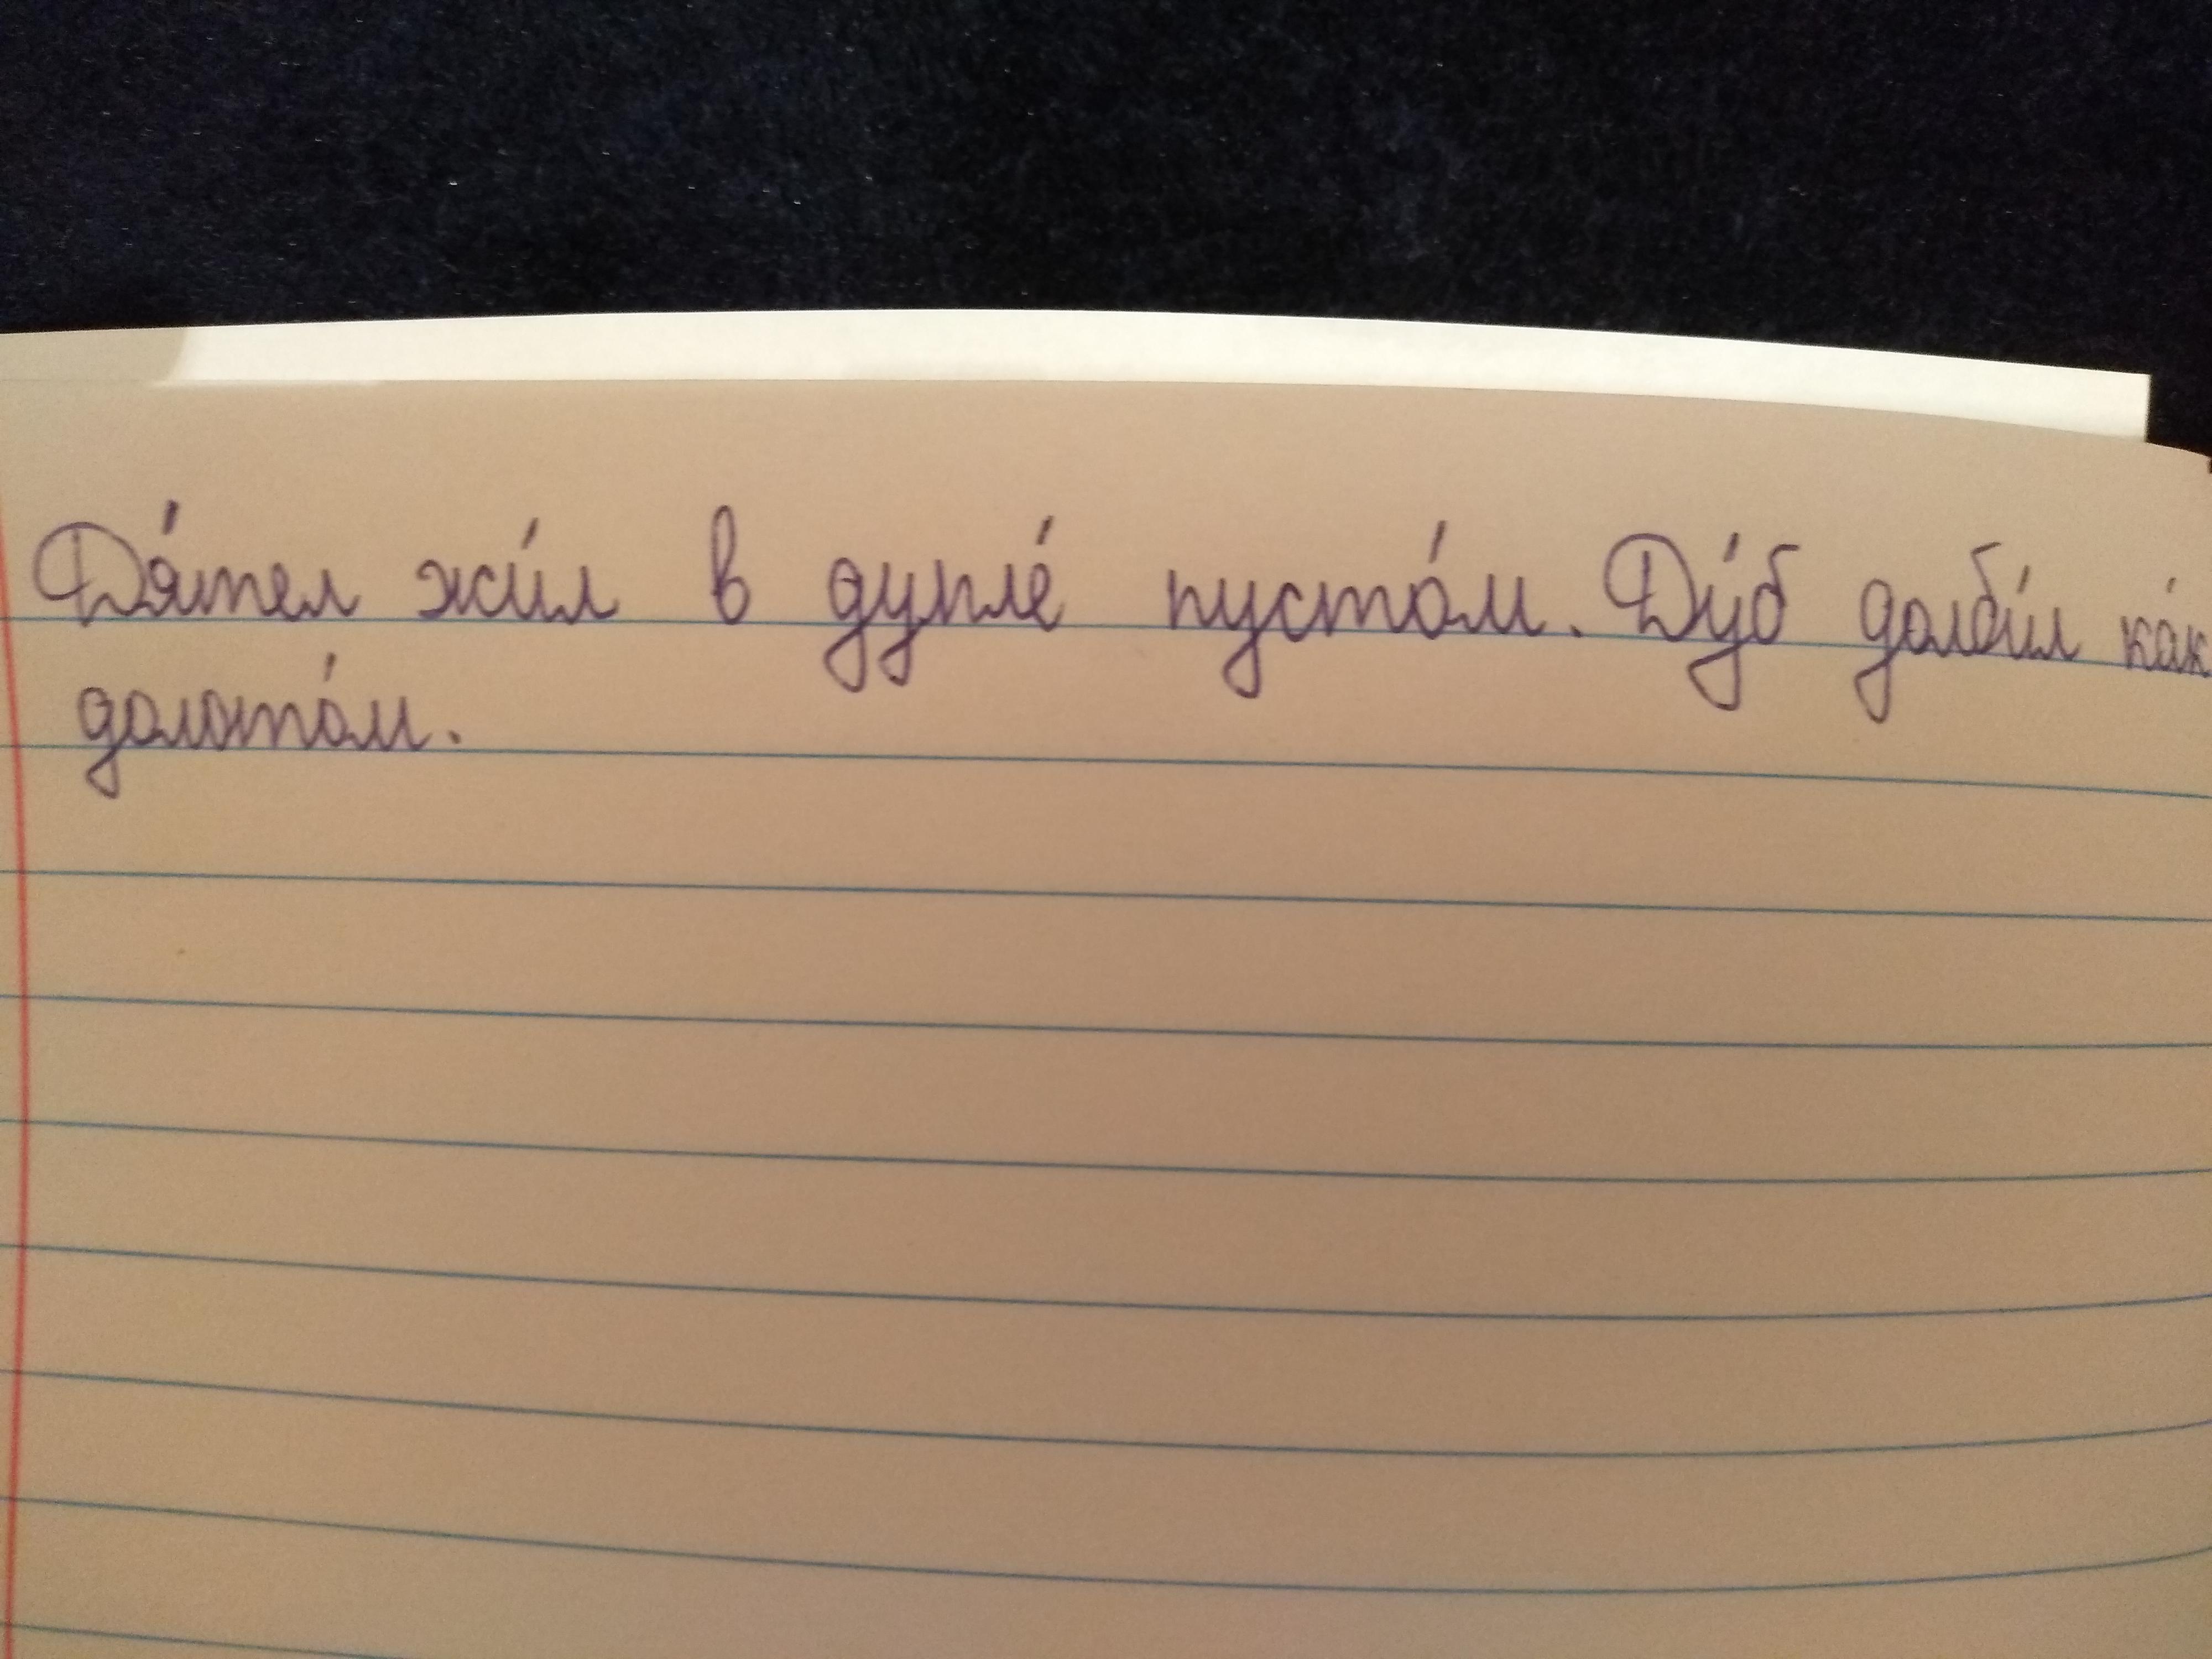 Дя́тел жи́л в дупле́ пусто́м. Ду́б долби́л ка́к
долото́м.